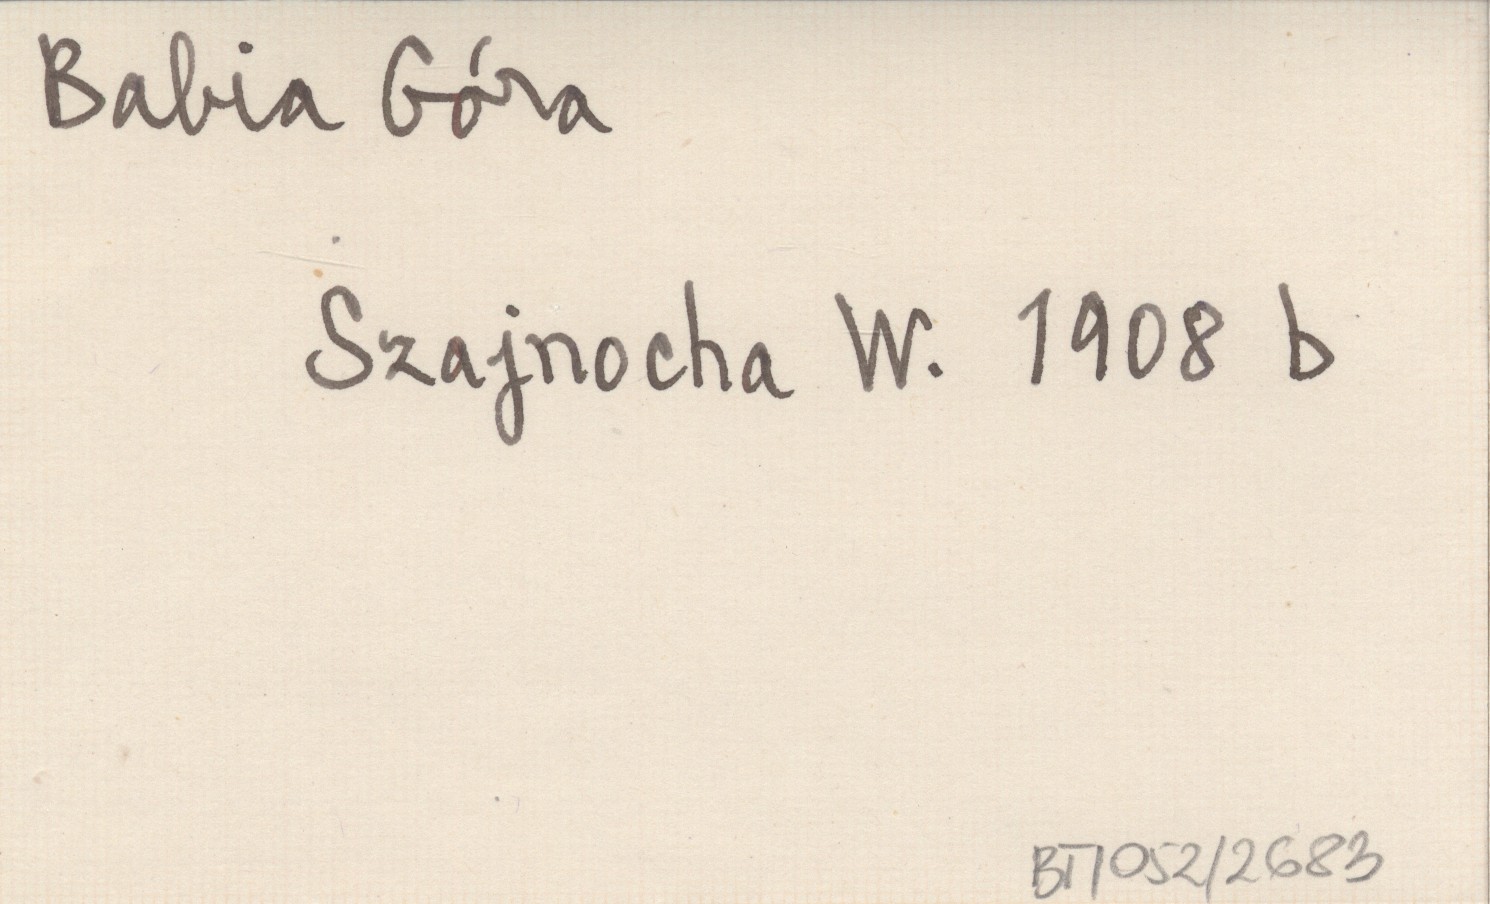 Babia Góra
Szajnocha W. 1908 b
BT/052/2683